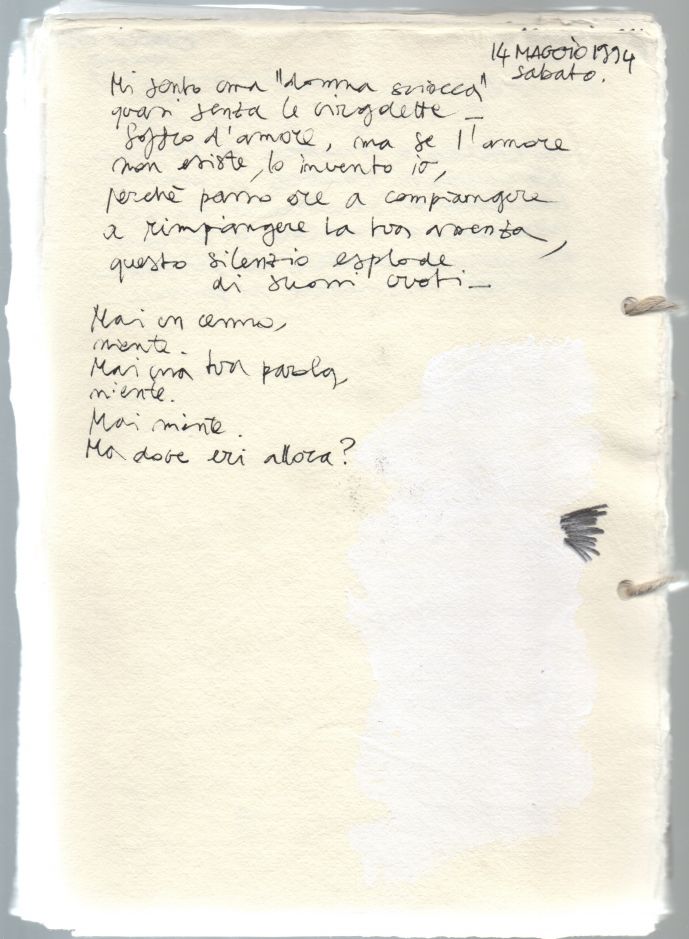 14 MAGGIO 1994
sabato.
Mi sento una "donna sciocca"
quasi senza le virgolette_
Soffro d'amore, ma se l'amore
non esiste, lo invento io,
perchè passo ore a compiangere
a rimpiangere la tua assenza,
questo silenzio esplode
di suoni vuoti_
Mai un cenno,
niente.
Mai una tua parola,
niente.
Mai niente.
Ma dove eri allora?